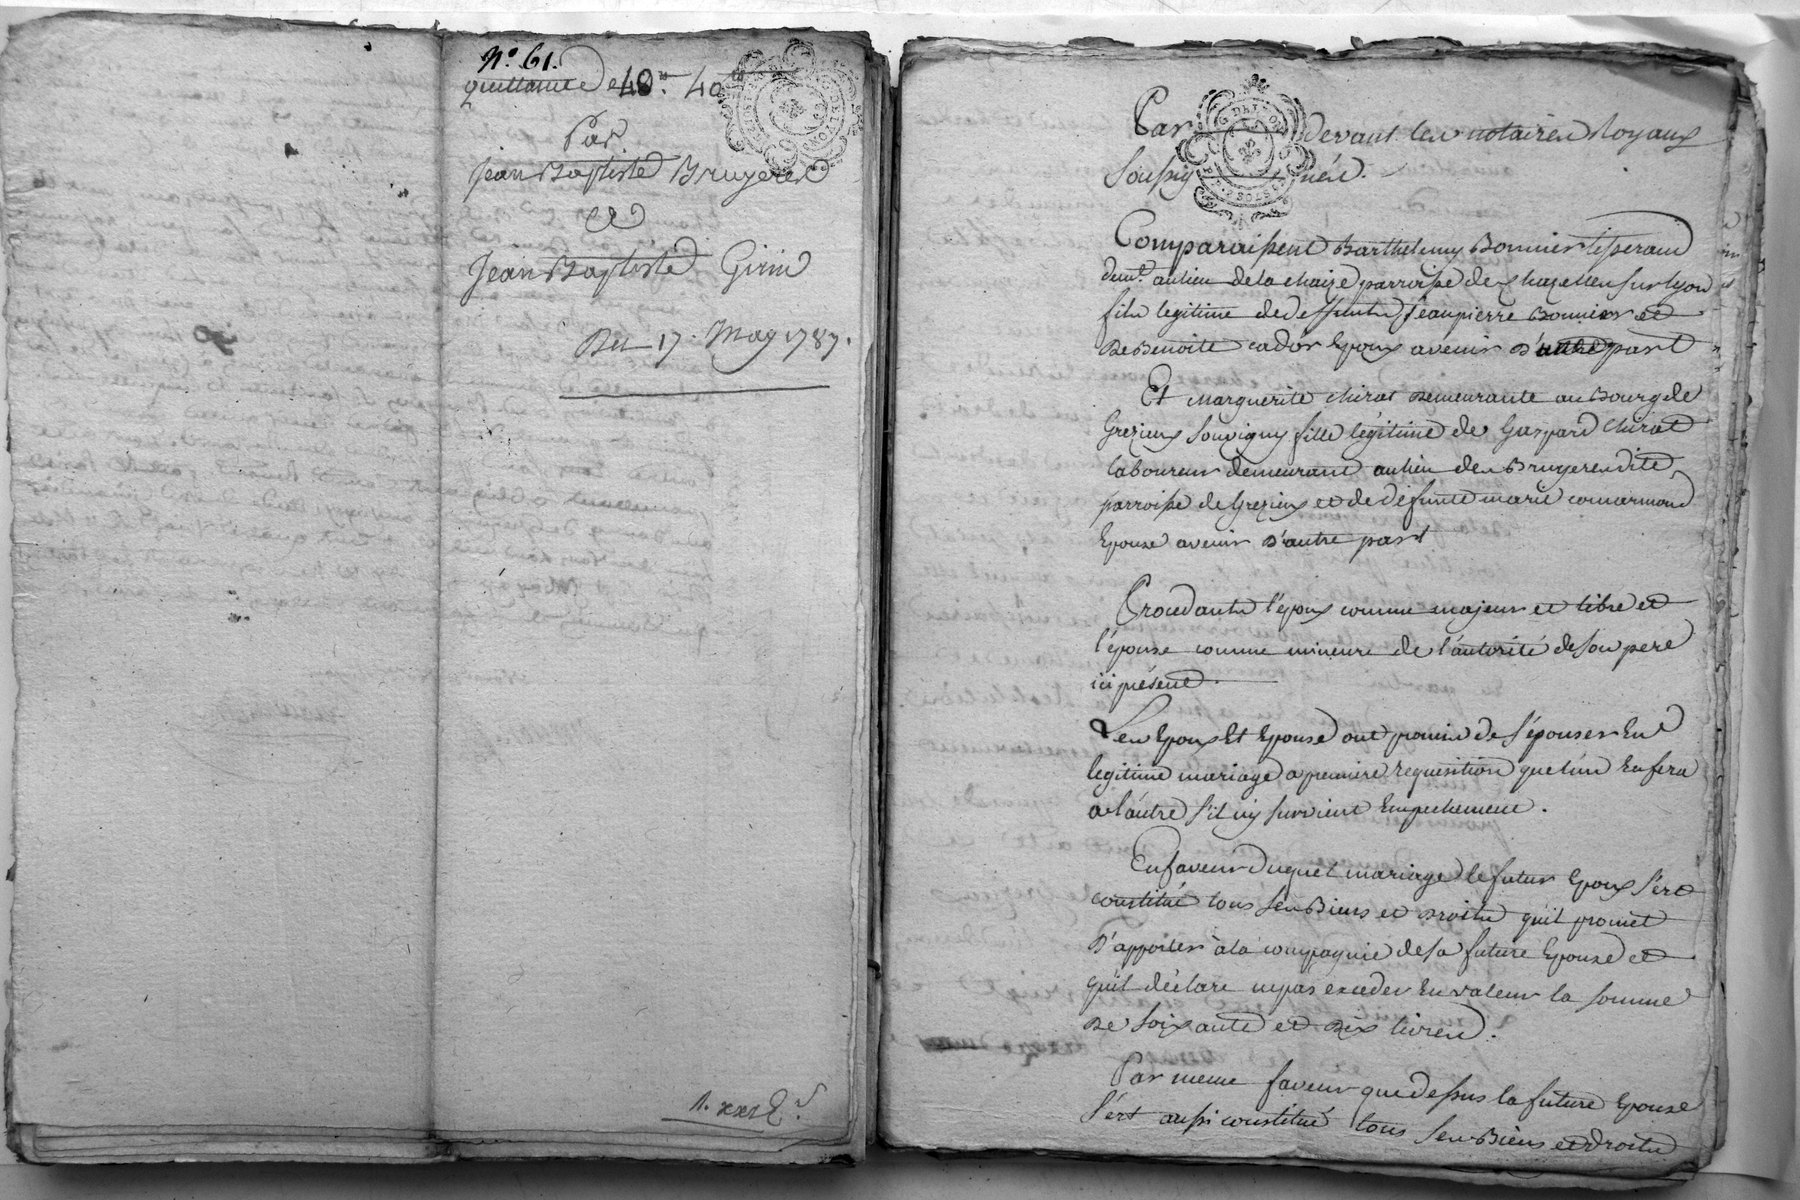 N.o 61.
quittance de 40.# 40#
Par
Jean Baptiste Bruyeres
a
Jean Baptiste Girin
Du 17. May 1787.
Par devant les notaires Royaux
soussignés.
Comparaissent Barthelemy Bonnier tisserand
demt. au lieu de la chaize parroisse de chazelles sur lyon
fils legitime de deffunts Jean pierre Bonnier et
de Benoite cador Epoux avenir d'une part
Et Marguerite chirat demeurante au Bourg de
Grezieux souvigny fille légitime de Gaspard chirat
laboureur demeurant au lieu des Bruyeres dite
parroisse de Grezieux et de défunte marie comarmond
Epouse avenir d'autre part
Procedants l'époux comme majeur et libre et
l'épouse comme mineure de l'autorité de son pere
ici présent.
Les Epoux Et Epouse ont promis de s'épouser En
legitime mariage a premiere requisition que l'un En fera
a l'autre s'il n'y survient Empechement.
En faveur duquel mariage le futur Epoux s'est
constitué tous ses Biens et droits qu'il promet
d'apporter à la compagnie de sa future Epouse et
qu'il déclare ne pas exceder En valeur la somme
de soixante et dix livres.
Par meme faveur que dessus la future Epouse
s'est aussi constitué tous ses Biens et droits